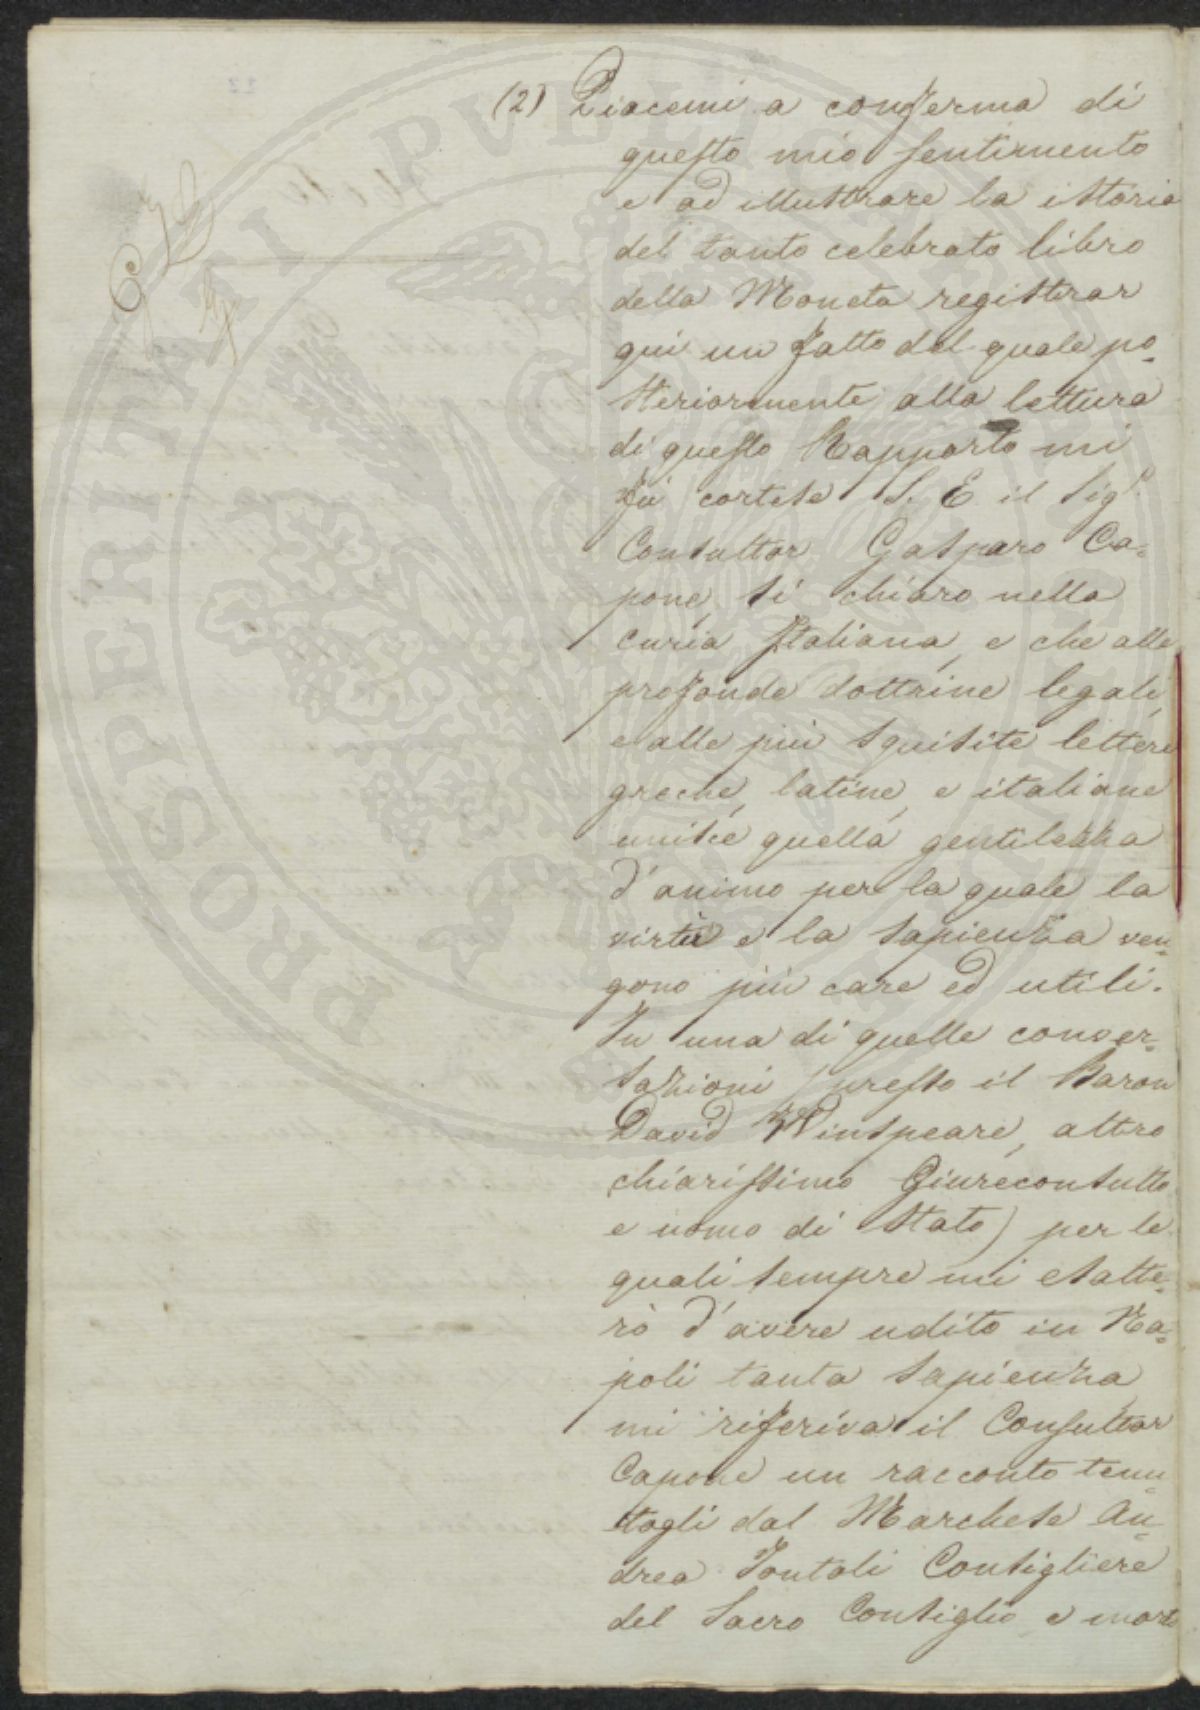 (2) Piacemi a conferma di
questo mio sentimento
e ad illustrare la istoria
del tanto celebrato libro
della Moneta registrar
qui un fatto del quale po=
steriormente alla lettura
di questo Rapporto mi
fu cortese S. E. il Sigr.
Consultor Gasparo Ca=
pone, sì chiaro nella
curia Italiana, e che alle
profonde dottrine legali,
e alle più squisite lettere
greche, latine, e italiane
unisce quella gentilezza
d'animo per la quale la
virtù e la sapienza ven=
gono più care ed utili.
In una di quelle conver=
sazioni (presso il Baron
David Winspeare, altro
chiarissimo Giureconsulto
e uomo di Stato) per le
quali sempre mi esalte=
rò d'avere udito in Na=
poli tanta sapienza
mi riferiva il Consultor
Capone un racconto tenu=
togli dal Marchese An=
drea Tontoli Consigliere
del Sacro Consiglio, e morto
PROSPERITATI PVBLICAE